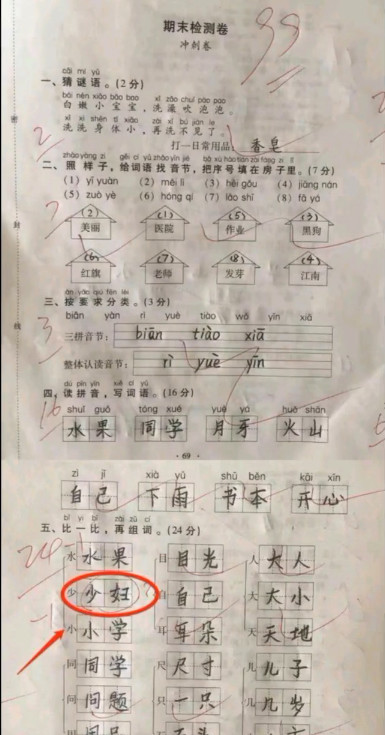 期末检测卷
冲刺卷
99
cāi mí yǔ
一、猜谜语。(2分)
bái nèn xiǎo bǎo bao xǐ zǎo chuī pào pao
白嫩小宝宝，洗澡吹泡泡。
xǐ xǐ shēn tǐ xiǎo zài xǐ bú jiàn le
洗洗身体小，再洗不见了。
打一日常用品：香皂
2
zhào yàng zi gěi cí yǔ zhǎo yīn jié bǎ xù hào tián zài fáng zi lǐ
二、照样子，给词语找音节，把序号填在房子里。(7分)
(1) yī yuàn (2) měi lì (3) hēi gǒu (4) jiāng nán
(5) zuò yè (6) hóng qí (7) lǎo shī (8) fā yá
(2) (1) (5) (3)
美丽 医院 作业 黑狗
(6) (7) (8) (4)
红旗 老师 发芽 江南
àn yāo qiú fēn lèi
三、按要求分类。(3分)
biān rì yuè tiào wǒ yīn xiā
3
三拼音节： biān tiào xiā
整体认读音节： rì yuè yīn
dú pīn yīn xiě cí yǔ
四、读拼音，写词语。(16分)
16
shuǐ guǒ tóng xué yuè yá huǒ shān
水果 同学 月牙 火山
· 69 ·
zì jǐ xià yǔ shū běn kāi xīn
自己 下雨 书本 开心
bǐ yì bǐ zài zǔ cí
五、比一比，再组词。(24分)
水 水果 目 目光 人 大人
少 少妇 自 自己 大 大小
小 小学 耳 耳朵 天 天地
同 同学 尺 尺寸 儿 儿子
问 问题 只 一只 几 几岁